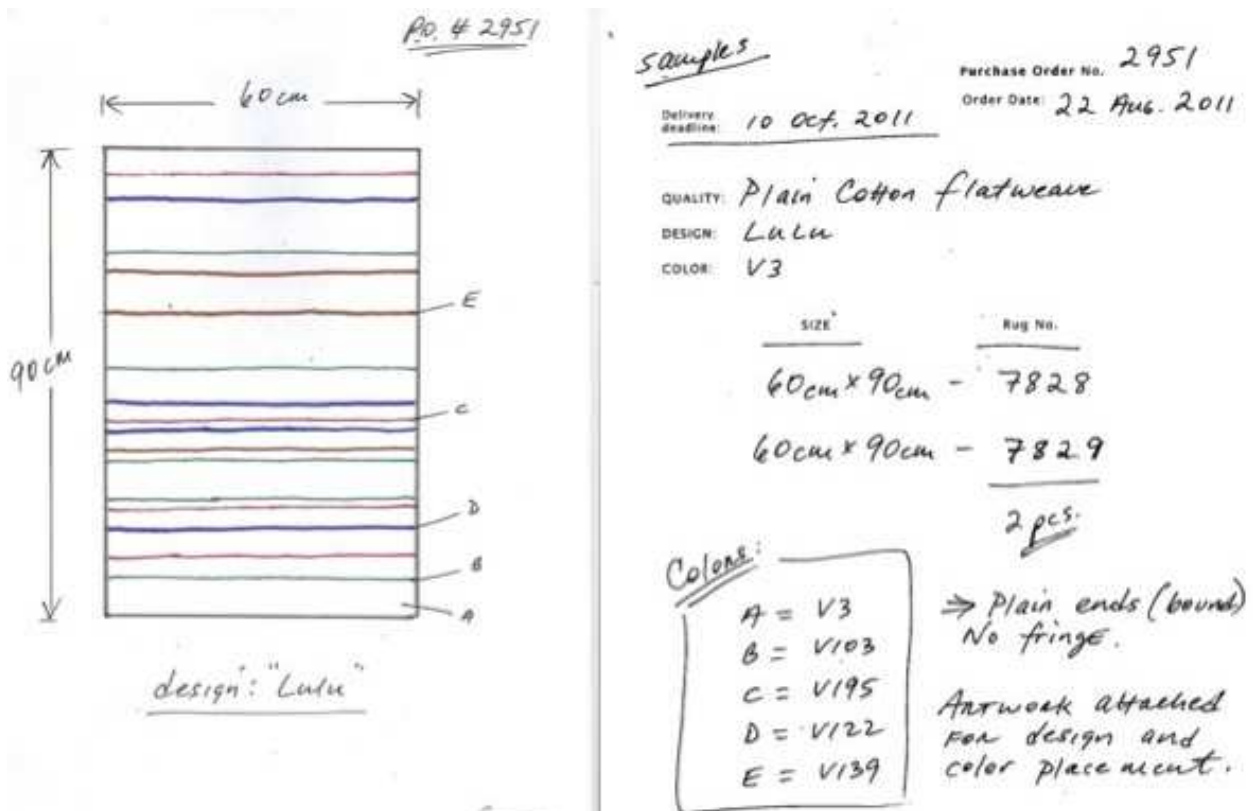 P.O. # 2951
60cm
90cm
E
C
D
B
A
design: "Lulu"
Samples
Purchase Order No. 2951
Order Date: 22 Aug. 2011
Delivery deadline: 10 Oct. 2011
QUALITY: Plain Cotton flatweave
DESIGN: LuLu
COLOR: V3
SIZE Rug No.
60cm x 90cm - 7828
60cm x 90cm - 7829
2 pcs.
Colors:
A = V3
B = V103
C = V195
D = V122
E = V139
⇒ Plain ends (bound)
No fringe.
Artwork attached
For design and
color placement.